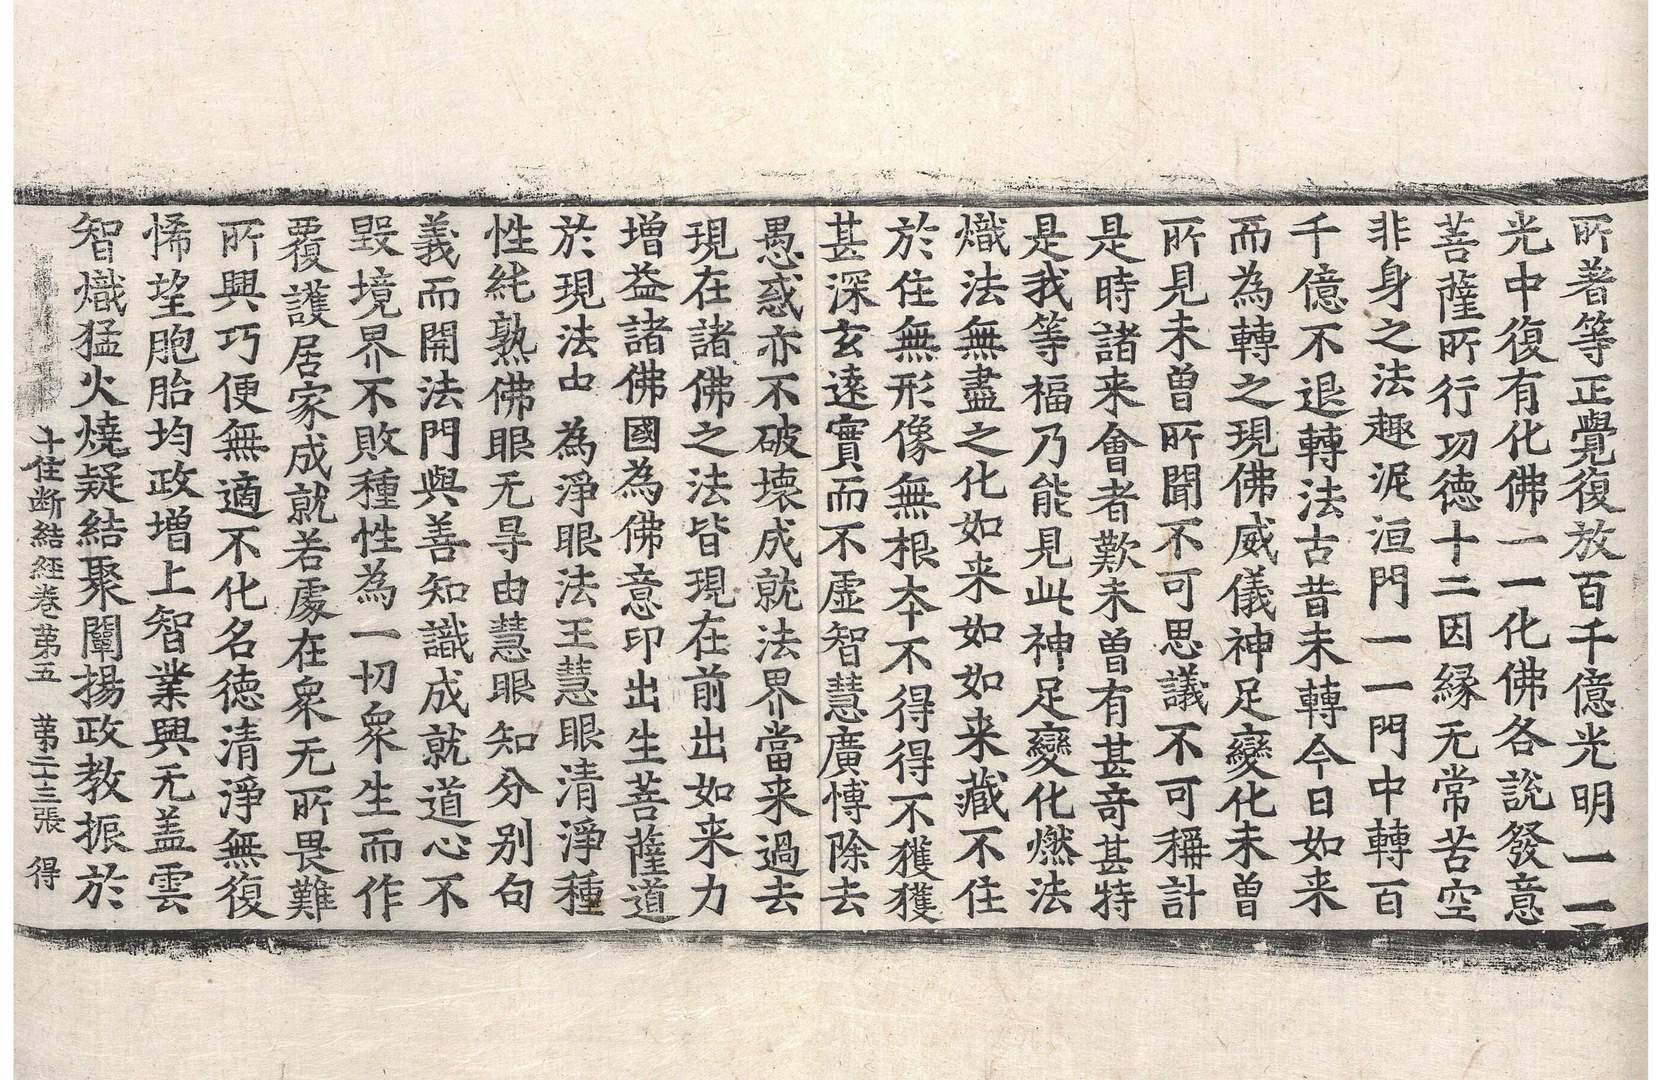 所著等正覺復放百千億光明一一
光中復有化佛一一化佛各說發意
菩薩所行功德十二因緣无常苦空
非身之法趣泥洹門一一門中轉百
千億不退轉法古昔未轉今日如来
而為轉之現佛威儀神足變化未曾
所見未曾所聞不可思議不可稱計
是時諸来會者歎未曾有甚奇甚特
是我等福乃能見此神足變化燃法
熾法無盡之化如来如如来藏不住
於住無形像無根本不得得不獲獲
甚深玄遠實而不虛智慧廣博除去
愚惑亦不破壞成就法界當来過去
現在諸佛之法皆現在前出如来力
增益諸佛國為佛意印出生菩薩道
於現法中為淨眼法王慧眼清淨種
性純熟佛眼无㝵由慧眼知分別句
義而開法門與善知識成就道心不
毀境界不敗種性為一切衆生而作
覆護居家成就若處在衆无所畏難
所興巧便無適不化名德清淨無復
悕望胞胎均政增上智業興无盖雲
智熾猛火燒疑結聚闡揚政教振於
十住断結經卷第五 第二十三張 得